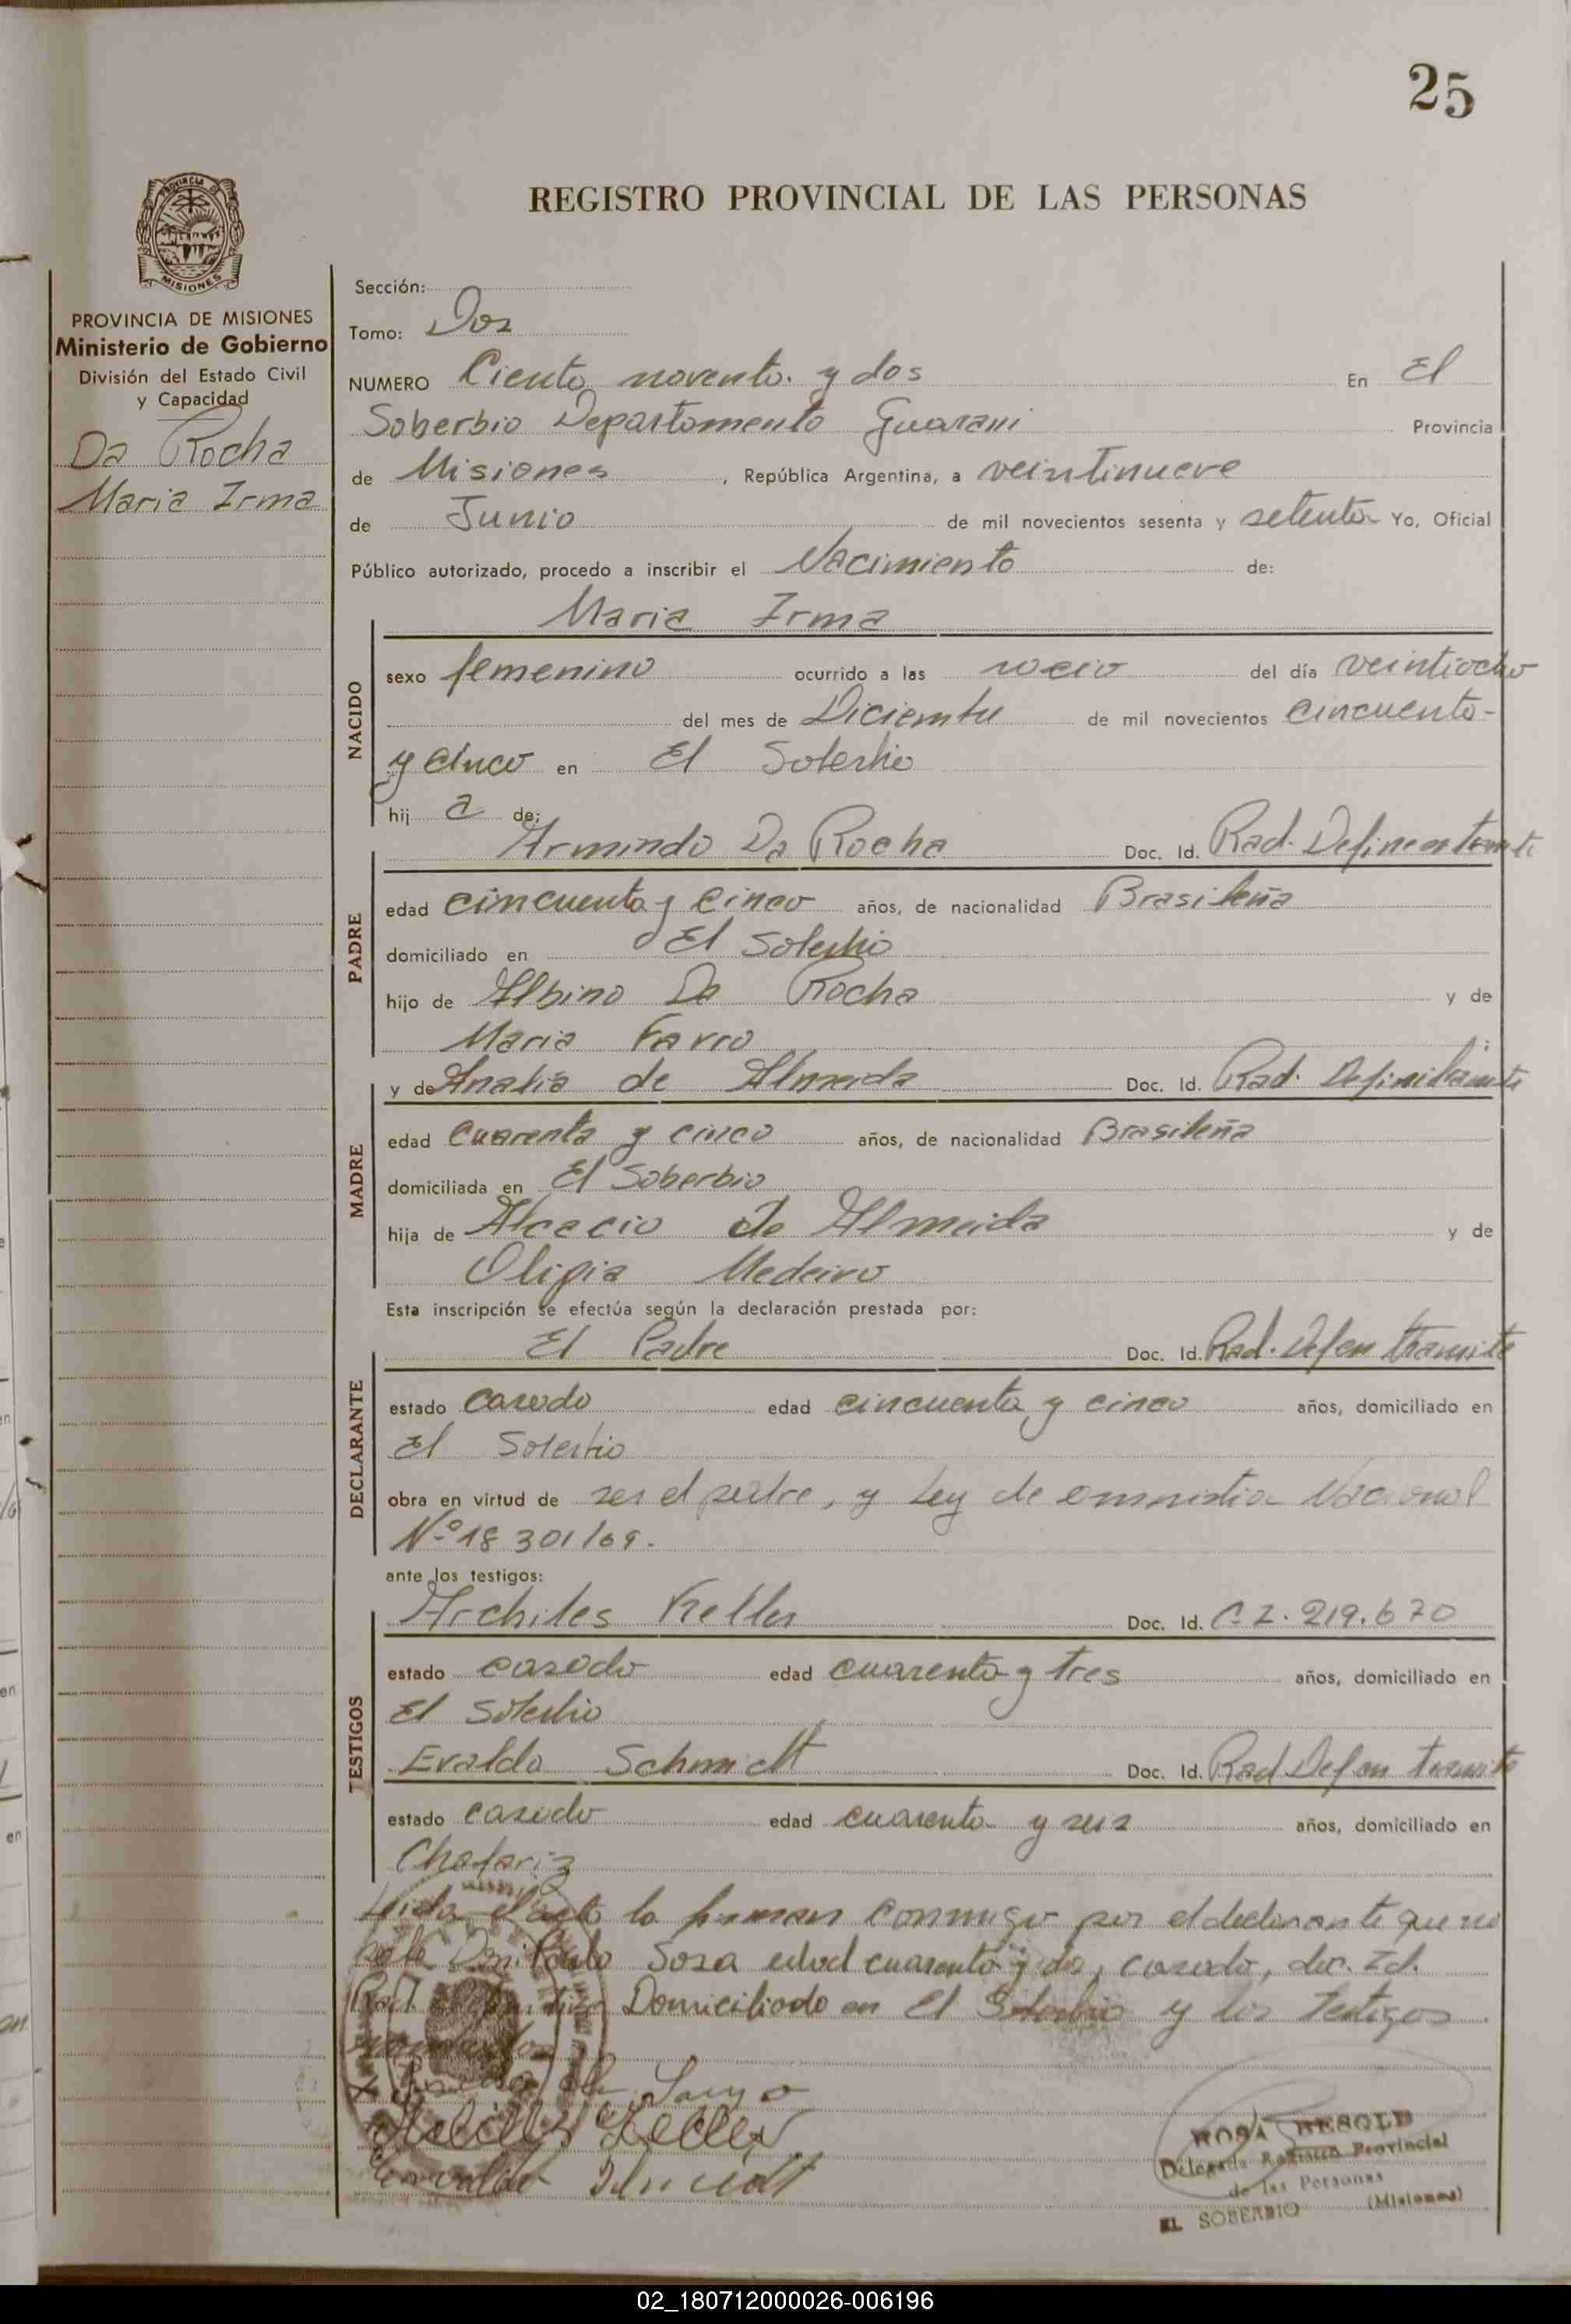 25
REGISTRO PROVINCIAL DE LAS PERSONAS
PROVINCIA DE MISIONES
PROVINCIA DE MISIONES
Ministerio de Gobierno
División del Estado Civil
y Capacidad
Da Rocha
Maria Irma
Sección:
Tomo: Dos
NUMERO Ciento noventa y dos En El
Soberbio Departamento Guarani Provincia
de Misiones, República Argentina, a veintinueve
de Junio de mil novecientos sesenta y setenta Yo, Oficial
Público autorizado, procedo a inscribir el Nacimiento de:
Maria Irma
NACIDO
sexo femenino ocurrido a las del día veintiocho
del mes de Diciembre de mil novecientos cincuenta
y cinco en El Soberbio
hij a de:
Armindo Da Rocha Doc. Id. Rad. Def. en tramite
PADRE
edad cincuenta y cinco años, de nacionalidad Brasileña
domiciliado en El Soberbio
hijo de Albino Da Rocha y de
Maria Favro ;
y de Analia de Almeida Doc. Id. Rad.
MADRE
edad cuarenta y cinco años, de nacionalidad Brasileña
domiciliada en El Soberbio
hija de Alcacio de Almeida y de
Olipia Medeiro
Esta inscripción se efectúa según la declaración prestada por:
El Padre Doc. Id. Rad. Def en tramite
DECLARANTE
estado casado edad cincuenta y cinco años, domiciliado en
El Soberbio
obra en virtud de ser el padre, y Ley de amnistia Nacional
Nº 18 301/69.
ante los testigos:
Archiles Keller Doc. Id. C.I. 219.670
TESTIGOS
estado casado edad cuarenta y tres años, domiciliado en
El Soberbio
Evaldo Schmidt Doc. Id. Rad Def en tramite
estado casado edad cuarenta y seis años, domiciliado en
Chafariz
Leida el acta la firman conmigo por el declarante que no
Sosa edad cuarenta y dos, casado, doc. Id.
Rad. Domiciliado en El Soberbio y los testigos
Keller
Schmidt
ROSA BESOLD
Delegada Registro Provincial
de las Personas
EL SOBERBIO (Misiones)
02_180712000026-006196